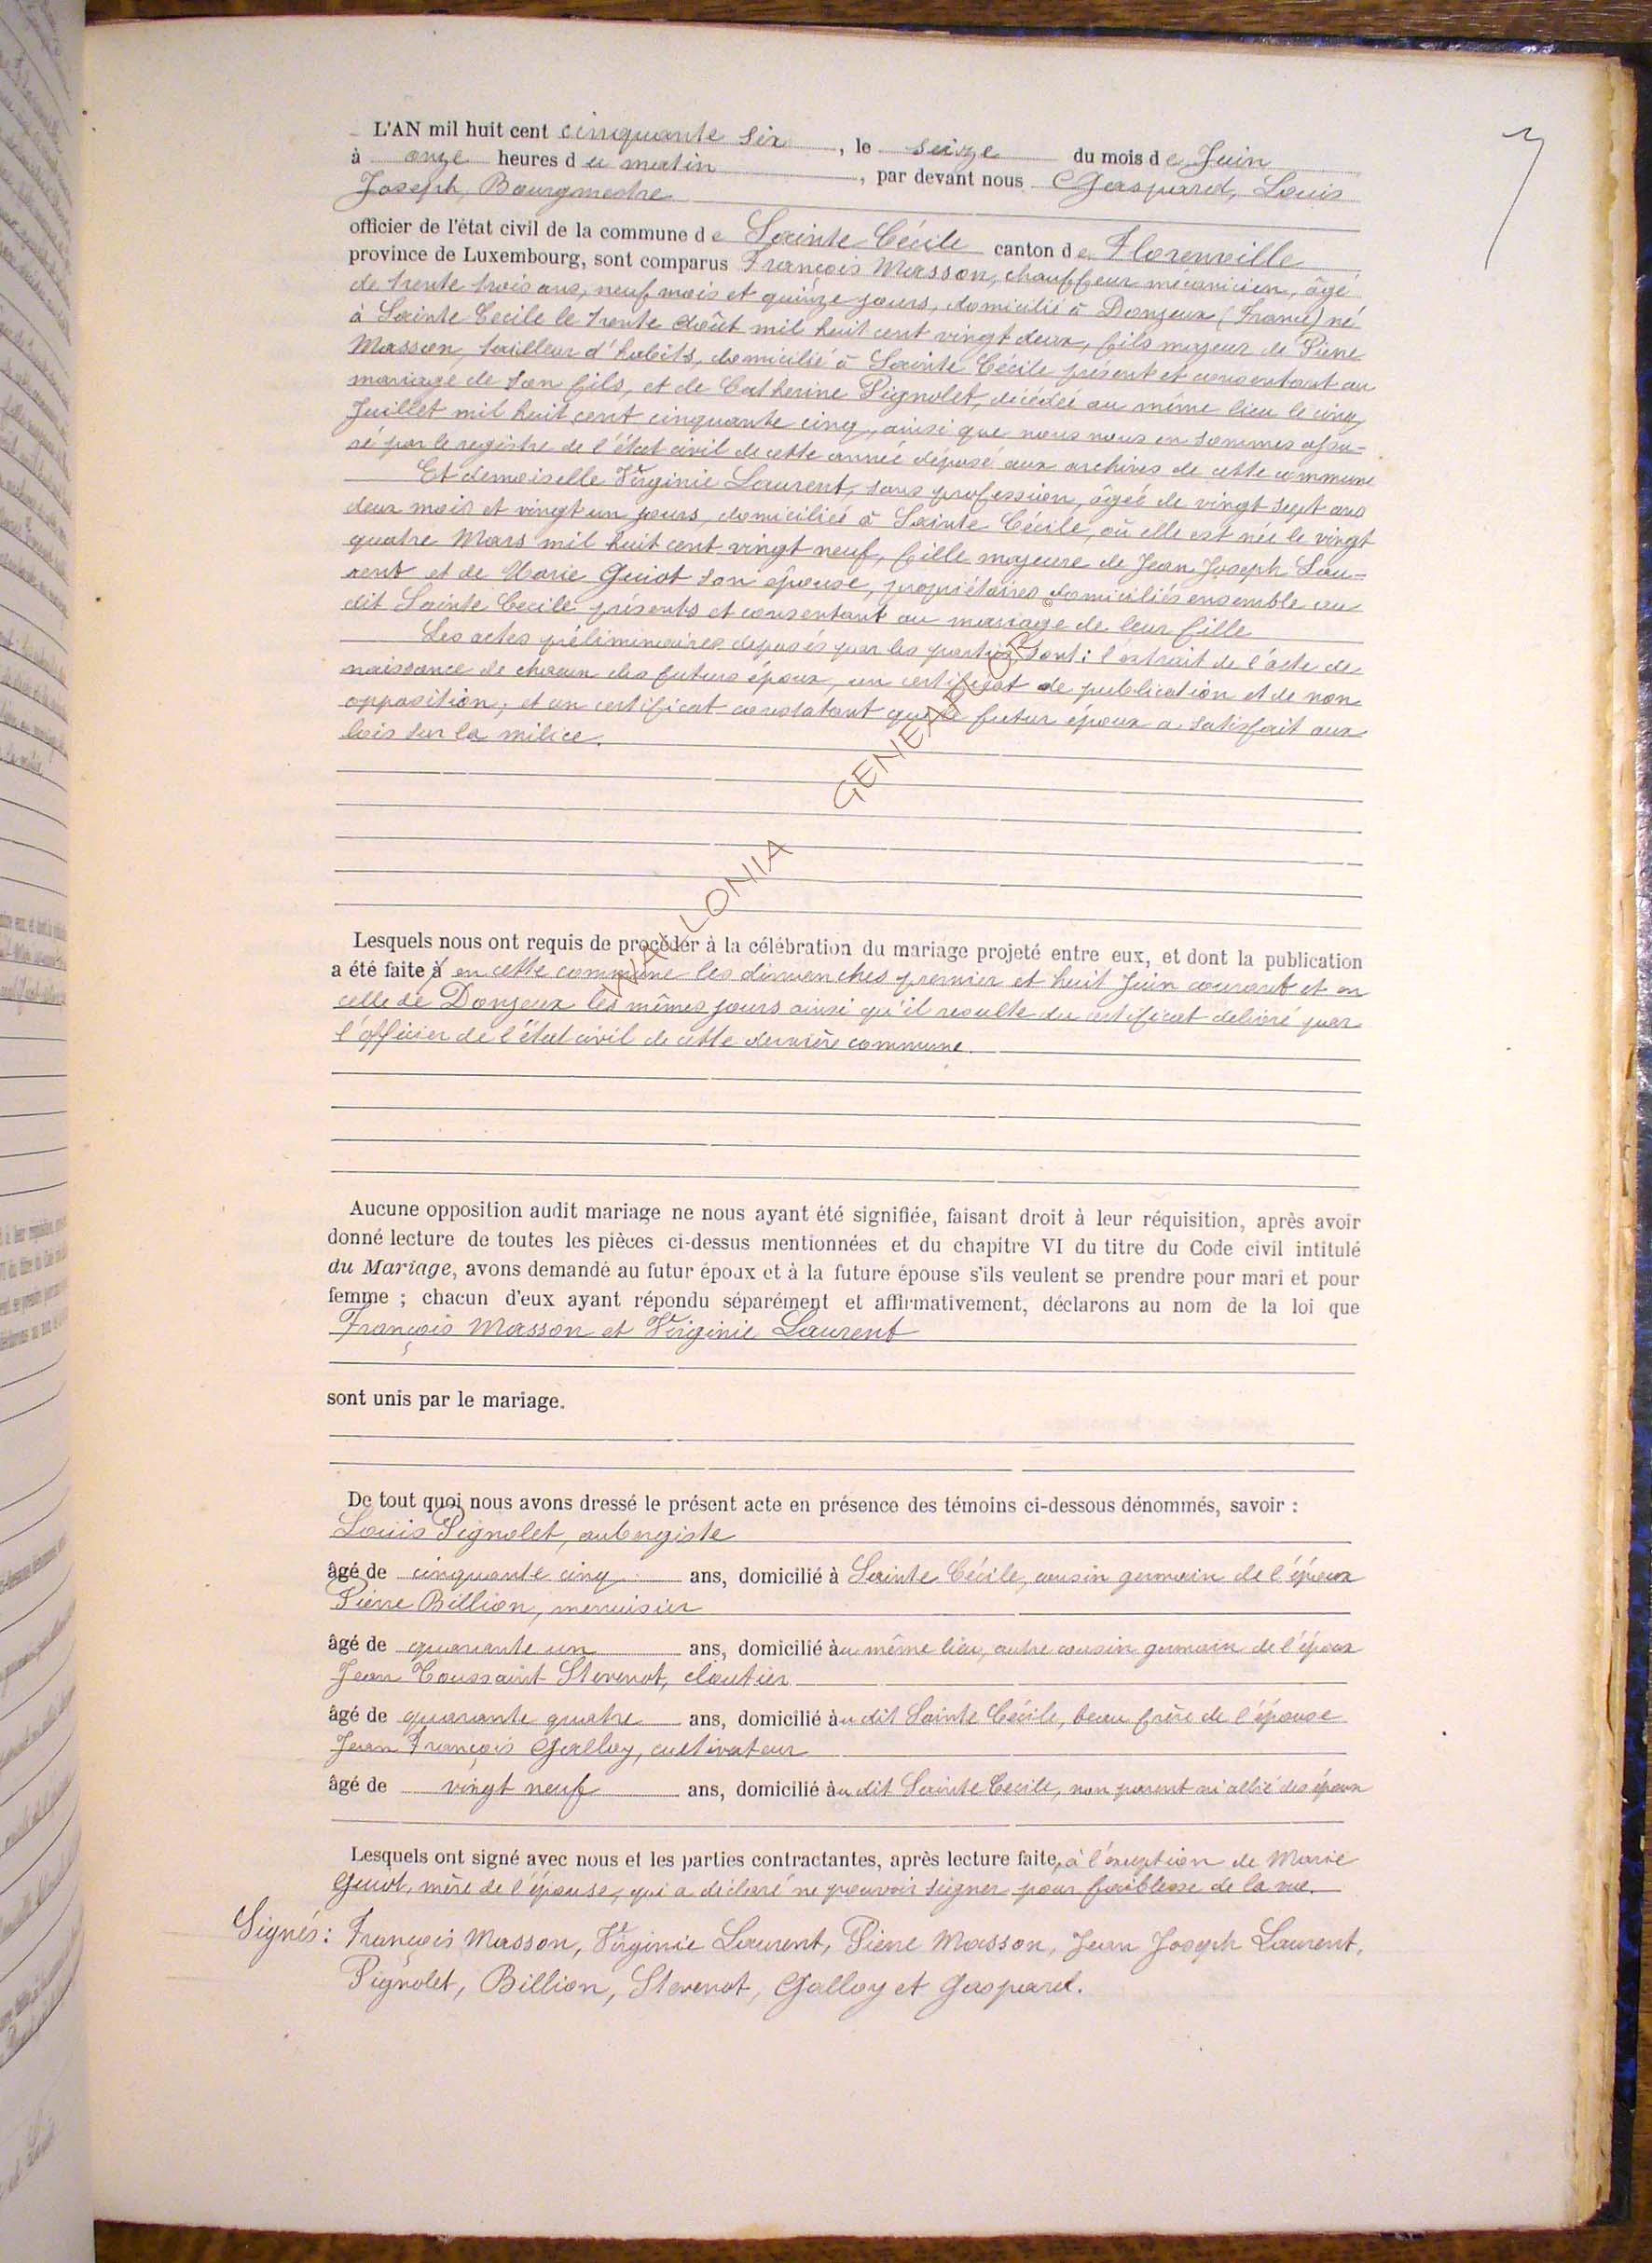 L'AN mil huit cent cinquante six, le seize du mois de Juin
à onze heures du matin, par devant nous Gaspard, Louis
Joseph, Bourgmestre
officier de l'état civil de la commune de Sainte Cécile canton de Florenville
province de Luxembourg, sont comparus François Masson, chauffeur mécanicien, âgé
de trente trois ans, neuf mois et quinze jours, domicilié à Donjeux (France) né
à Sainte Cécile le trente Août mil huit cent vingt deux, fils majeur de Pierre
Masson, tailleur d'habits, domicilié à Sainte Cécile présent et consentant au
mariage de son fils, et de Catherine Pignolet, décédée au même lieu le cinq
Juillet mil huit cent cinquante cinq, ainsi que nous nous en sommes assu=
ré par le registre de l'état civil de cette année déposé aux archives de cette commune
Et demoiselle Virginie Laurent, sans profession, âgée de vingt sept ans
deux mois et vingt un jours, domiciliée à Sainte Cécile, où elle est née le vingt
quatre Mars mil huit cent vingt neuf, fille majeure de Jean Joseph Lau=
rent et de Marie Guiot son épouse, propriétaires domiciliés ensemble au
dit Sainte Cécile présents et consentant au mariage de leur fille
Les actes préliminaires déposés par les parties sont: l'extrait de l'acte de
naissance de chacun des futurs époux, un certificat de publication et de non
opposition, et un certificat constatant que le futur époux a satisfait aux
lois sur la milice.
WALLONIA GENEAFLOR ©
Lesquels nous ont requis de procéder à la célébration du mariage projeté entre eux, et dont la publication
a été faite à en cette commune les dimanches premier et huit Juin courant et en
celle de Donjeux les mêmes jours ainsi qu'il resulte du certificat delivré par
l'officier de l'état civil de cette dernière commune.
Aucune opposition audit mariage ne nous ayant été signifiée, faisant droit à leur réquisition, après avoir
donné lecture de toutes les pièces ci-dessus mentionnées et du chapitre VI du titre du Code civil intitulé
du Mariage, avons demandé au futur époux et à la future épouse s'ils veulent se prendre pour mari et pour
femme ; chacun d'eux ayant répondu séparément et affirmativement, déclarons au nom de la loi que
François Masson et Virginie Laurent
sont unis par le mariage.
De tout quoi nous avons dressé le présent acte en présence des témoins ci-dessous dénommés, savoir :
Louis Pignolet, aubergiste
âgé de cinquante cinq ans, domicilié à Sainte Cécile, cousin germain de l'époux
Pierre Billion, menuisier
âgé de quarante un ans, domicilié àu même lieu, autre cousin germain de l'époux
Jean Toussaint Stevenot, cloutier
âgé de quarante quatre ans, domicilié àu dit Sainte Cécile, beau frère de l'épouse
Jean François Galloy, cultivateur
âgé de vingt neuf ans, domicilié àu dit Sainte Cécile, non parent ni allié des époux
Lesquels ont signé avec nous et les parties contractantes, après lecture faite, à l'exception de Marie
Guiot, mère de l'épouse, qui a déclaré ne pouvoir signer pour faiblesse de la vue.
Signés: François Masson, Virginie Laurent, Pierre Masson, Jean Joseph Laurent,
Pignolet, Billion, Stevenot, Galloy et Gaspard.